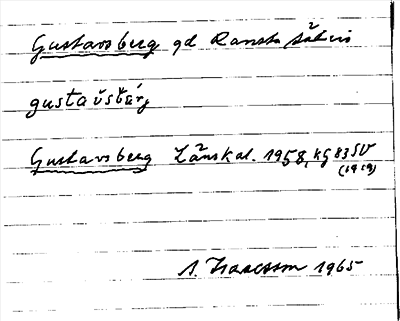 Gustavsberg gd Ransta säteri
gustavsbärj
Gustavsberg Länskal. 1958, kg 83 SV
(1919)
1. Isaacsson 1965